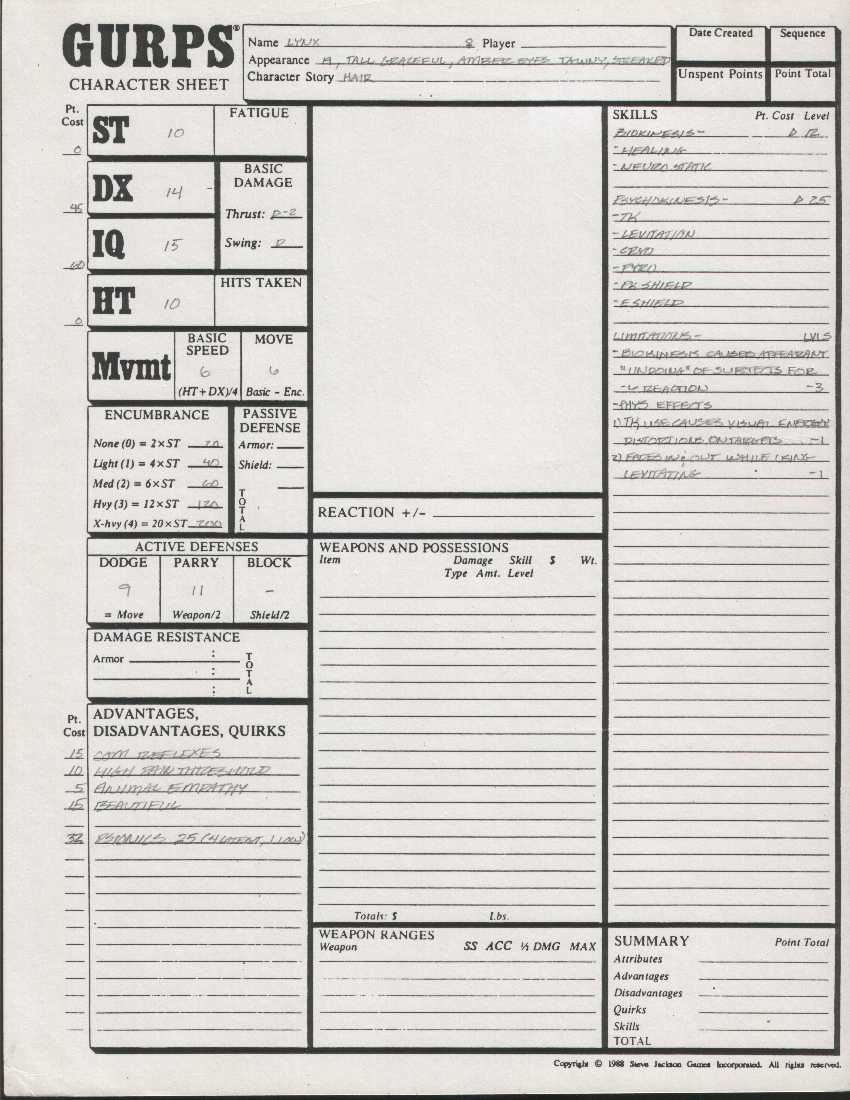 GURPS®
CHARACTER SHEET
Name LYNX ♀ Player
Appearance 19, TALL GRACEFUL, AMBER EYES TAWNY, STREAKED
Character Story HAIR
Date Created
Sequence
Unspent Points
Point Total
Pt. Cost
ST 10
0
FATIGUE
DX 14
45
BASIC DAMAGE
Thrust: D-2
Swing: D
IQ 15
60
HT 10
0
HITS TAKEN
Mvmt
BASIC SPEED
6
(HT+DX)/4
MOVE
6
Basic - Enc.
ENCUMBRANCE
None (0) = 2×ST 20
Light (1) = 4×ST 40
Med (2) = 6×ST 60
Hvy (3) = 12×ST 120
X-hvy (4) = 20×ST 200
PASSIVE DEFENSE
Armor:
Shield:
TOTAL
ACTIVE DEFENSES
DODGE PARRY BLOCK
9 11 -
= Move Weapon/2 Shield/2
DAMAGE RESISTANCE
Armor
TOTAL
Pt. Cost
ADVANTAGES,
DISADVANTAGES, QUIRKS
15 COM REFLEXES
10 HIGH PAIN THRESHOLD
5 ANIMAL EMPATHY
15 BEAUTIFUL
32 PSIONICS 25 (4 LATENT,
REACTION +/-
WEAPONS AND POSSESSIONS
Item Damage Skill $ Wt.
Type Amt. Level
Totals: $ Lbs.
WEAPON RANGES
Weapon SS ACC ½ DMG MAX
SKILLS Pt. Cost Level
BIOKINESIS- P 12
-HEALING
-NEURO STATIC
PSYCHOKINESIS- P 25
-TK
-LEVITATION
-CRYO
-PYRO
-PK SHIELD
-E SHIELD
LIMITATIONS- LVLS
-BIOKINESIS CAUSES APPEARANT
"UNDOING" OF SUBJECTS FOR
REACTION -3
-PHYS EFFECTS
1) TK USE CAUSES VISUAL ENERGY
DISTORTIONS ON TARGETS -1
2) FADES IN; OUT WHILE USING
LEVITATING -1
SUMMARY Point Total
Attributes
Advantages
Disadvantages
Quirks
Skills
TOTAL
Copyright © 1988 Steve Jackson Games Incorporated. All rights reserved.